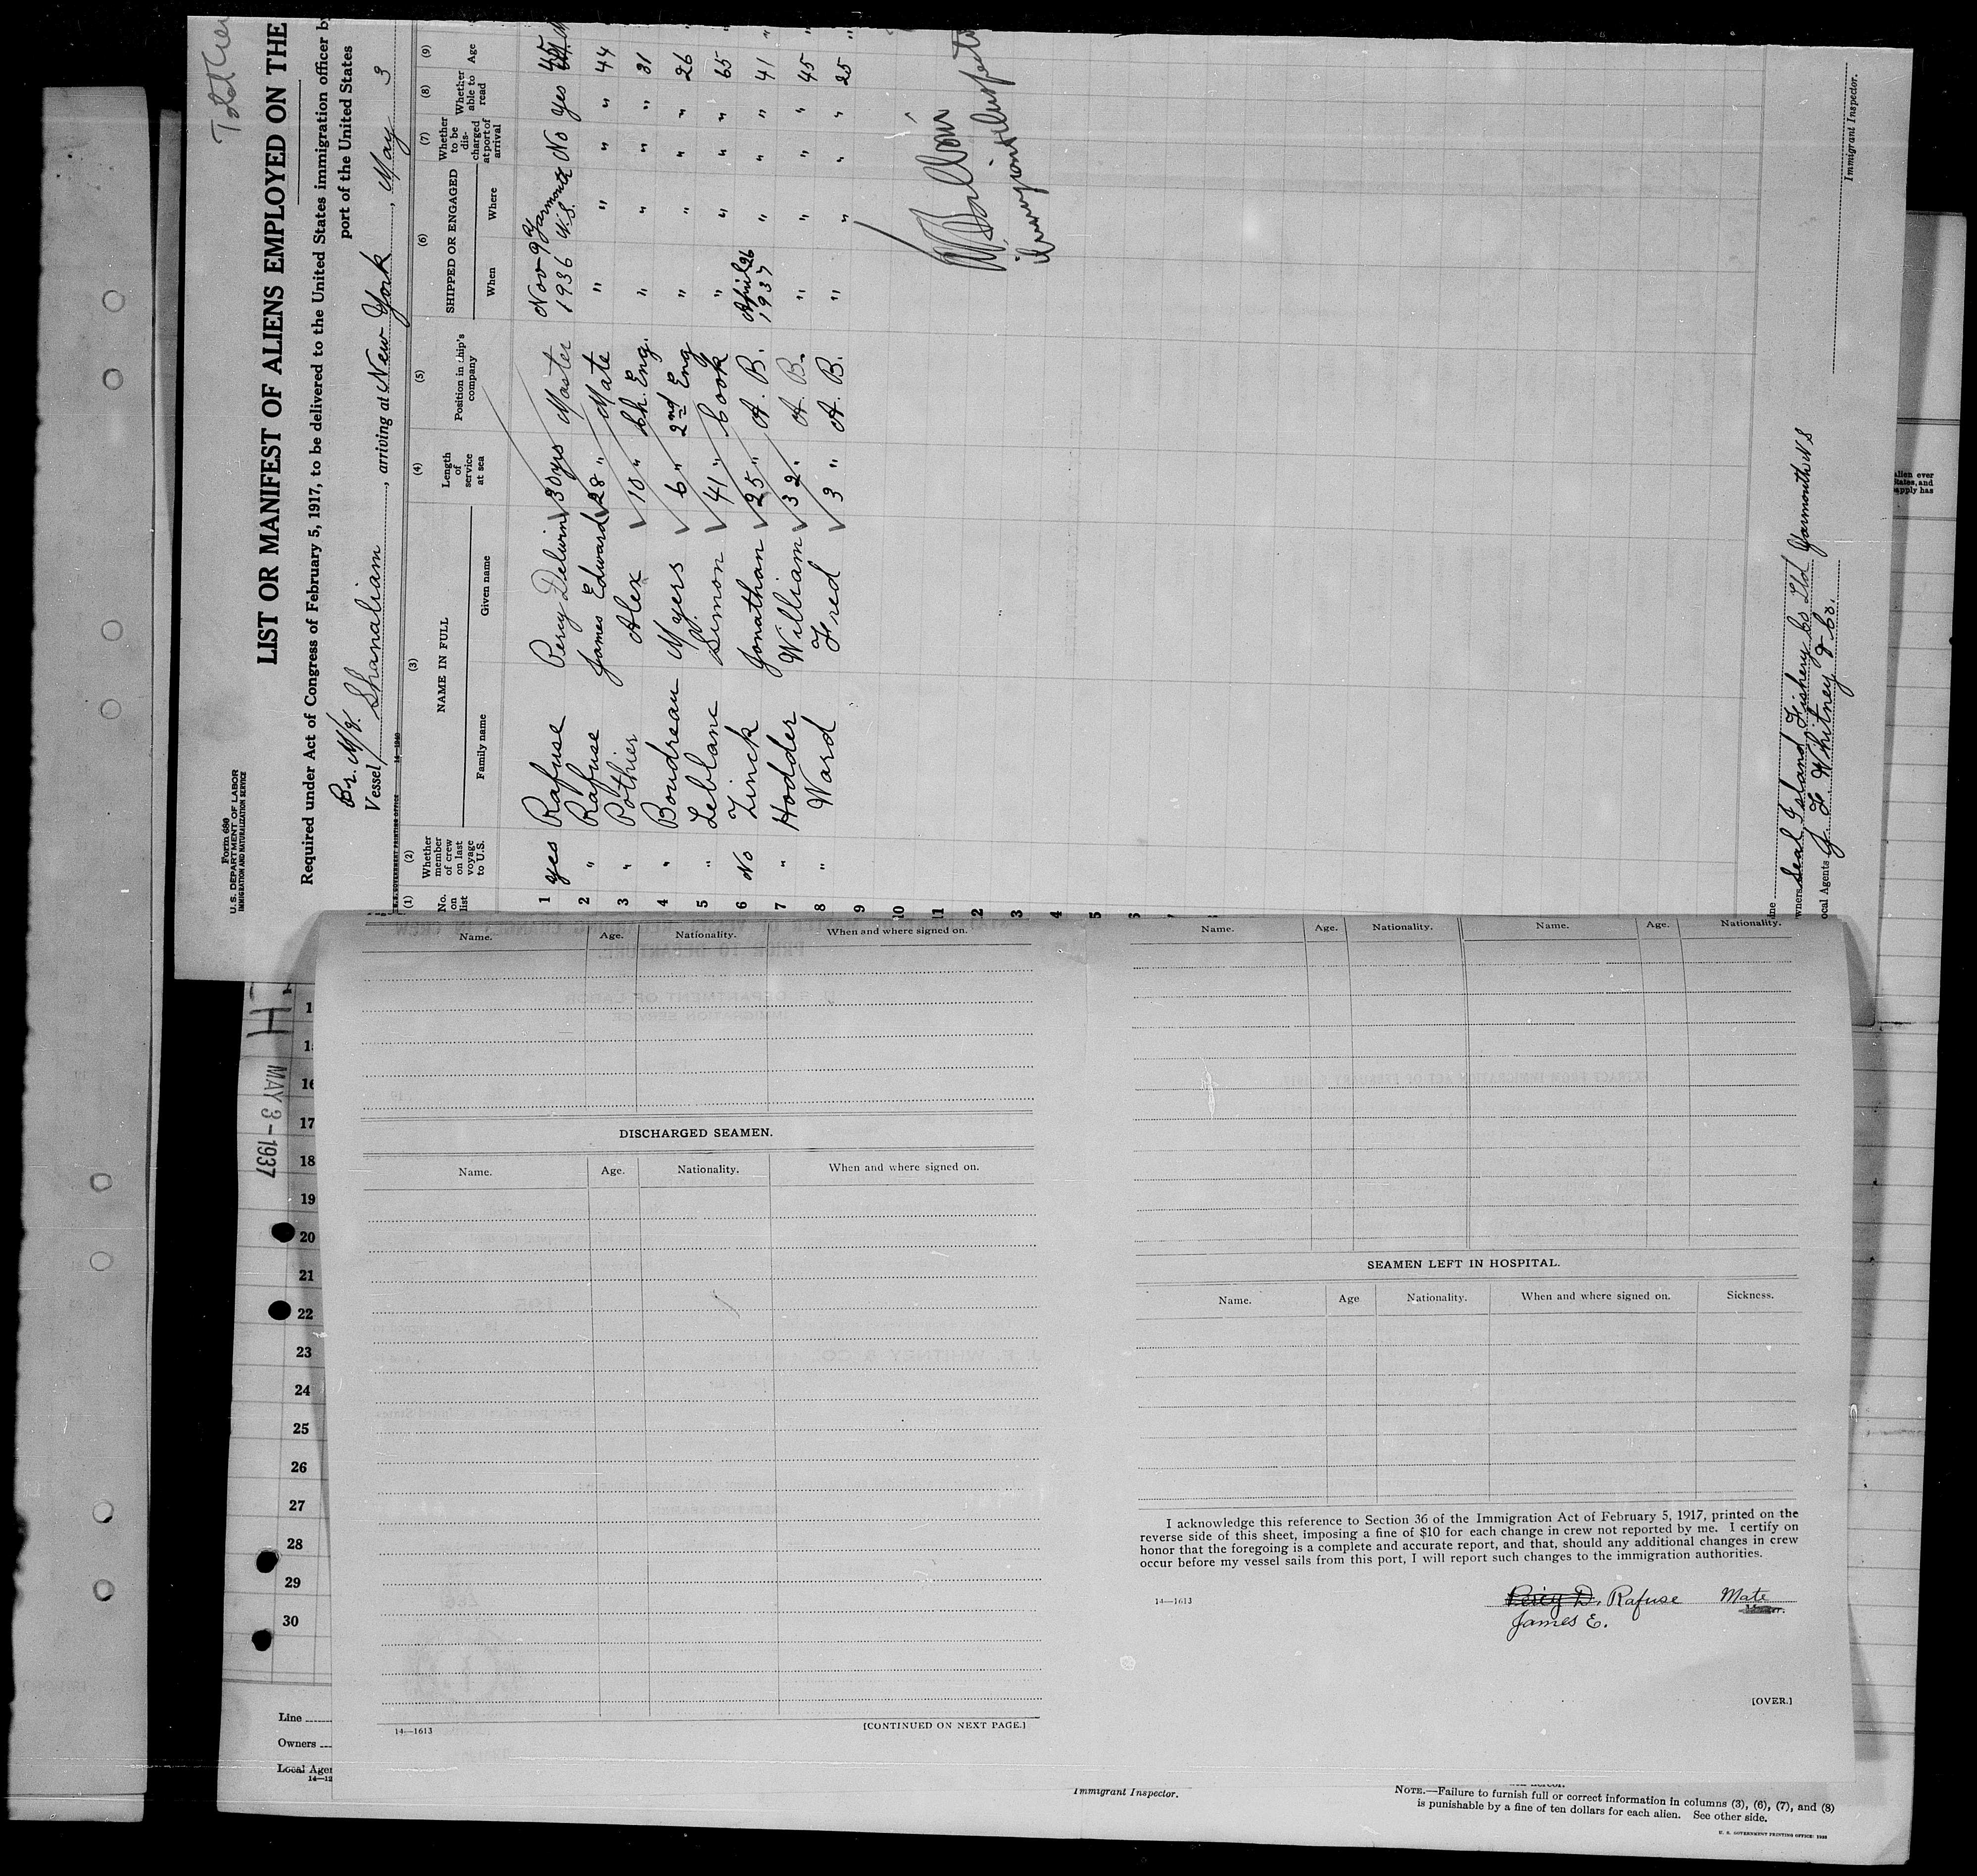 Form 680
U.S. DEPARTMENT OF LABOR
IMMIGRATION AND NATURALIZATION SERVICE
LIST OR MANIFEST OF ALIENS EMPLOYED ON THE
Required under Act of Congress of February 5, 1917, to be delivered to the United States immigration officer by
port of the United States
Br. M/V.
Vessel Shanalian, arriving at New York, May 3
(1) (2) (3) (4) (5) (6) (7) (8) (9)
No. on list
Whether member of crew on last voyage to U.S.
NAME IN FULL
Family name Given name
Length of service at sea
Position in ship's company
SHIPPED OR ENGAGED
When Where
Whether to be discharged at port of arrival
Whether able to read
Age
1 yes Rafuse Percy Delwin 30 yrs Master Nov 9th 1936 Yarmouth N.S. No yes 45
2 " Rafuse James Edward 28 " Mate " " " " 44
3 " Pothier Alex 10 " Ch. Eng. " " " " 31
4 " Boudreau Myers 6 " 2nd Eng " " " " 26
5 " Leblanc Simon 41 " Cook " " " " 65
6 No Zinck Jonathan 25 " A. B. April 26 1937 " " " 41
7 " Hodder William 32 " A. B. " " " " 45
8 " Ward Fred 3 " A. B. " " " " 25
9
10
11
12
3
4
5
Immigrant Inspector
Owners Seal Island Fishery Co Ltd Yarmouth N S
Local Agents J F Whitney & Co.
Immigrant Inspector.
MAY 3-1937
16
17
18
19
20
21
22
23
24
25
26
27
28
29
30
Line
Owners
Local Agen
Name. Age. Nationality. When and where signed on.
DISCHARGED SEAMEN.
Name. Age. Nationality. When and where signed on.
14—1613 [CONTINUED ON NEXT PAGE.]
Name. Age. Nationality. Name. Age. Nationality.
SEAMEN LEFT IN HOSPITAL.
Name. Age Nationality. When and where signed on. Sickness.
I acknowledge this reference to Section 36 of the Immigration Act of February 5, 1917, printed on the
reverse side of this sheet, imposing a fine of $10 for each change in crew not reported by me. I certify on
honor that the foregoing is a complete and accurate report, and that, should any additional changes in crew
occur before my vessel sails from this port, I will report such changes to the immigration authorities.
14—1613 Percy D. Rafuse Mate
James E.
[OVER.]
Immigrant Inspector.
NOTE.—Failure to furnish full or correct information in columns (3), (6), (7), and (8)
is punishable by a fine of ten dollars for each alien. See other side.
U. S. GOVERNMENT PRINTING OFFICE: